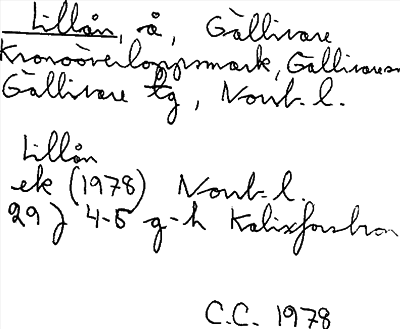 Lillån, å, Gällivare
Kronoöverloppsmark, Gällivare
Gällivare tg, Norrb. l.
Lillån
ek (1978) Norrb. l.
29 J 4-5 g-h Kalixforsbron
C.C. 1978